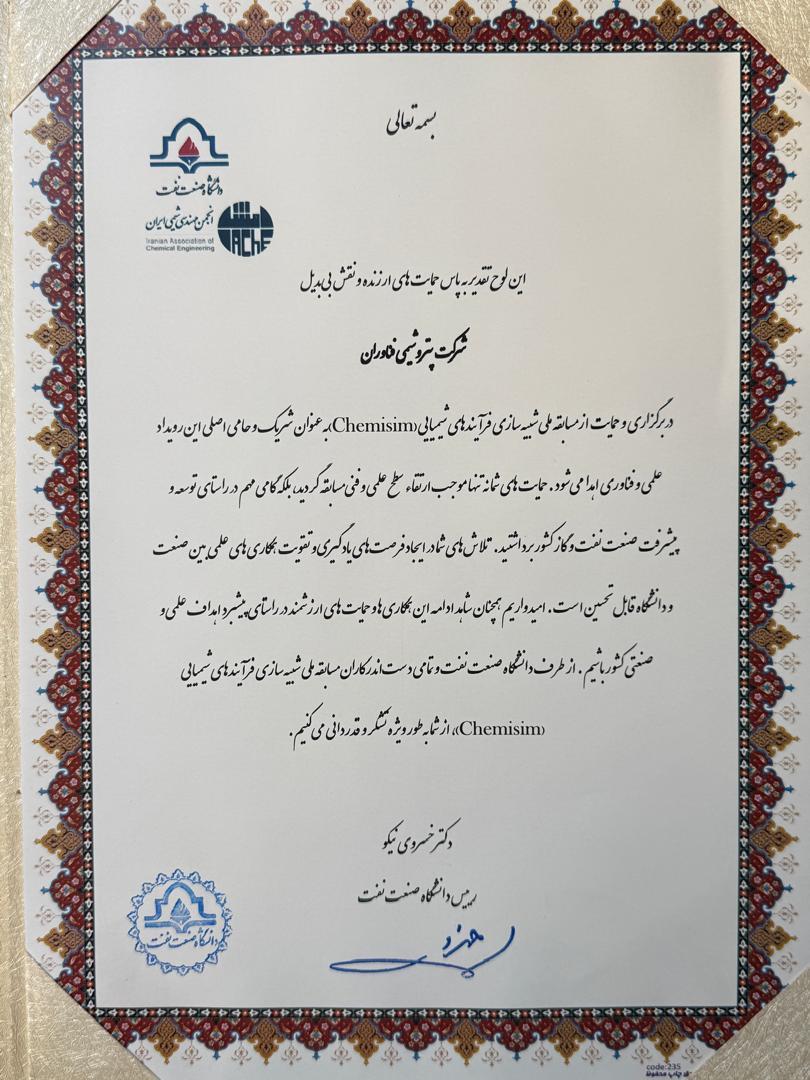 بسمه تعالی
دانشگاه صنعت نفت
انجمن مهندسی شیمی ایران
Iranian Association of
Chemical Engineering
IAChE
این لوح تقدیر به پاس حمایت های ارزنده و نقش بی بدیل
شرکت پتروشیمی فناوران
در برگزاری و حمایت از مسابقه ملی شبیه سازی فرآیندهای شیمیایی (Chemisim) به عنوان شریک و حامی اصلی این رویداد
علمی و فناوری اهدا می شود. حمایت های شما نه تنها موجب ارتقاء سطح علمی و فنی مسابقه گردید، بلکه گامی مهم در راستای توسعه و
پیشرفت صنعت نفت و گاز کشور برداشتید. تلاش های شما در ایجاد فرصت های یادگیری و تقویت همکاری های علمی بین صنعت
و دانشگاه قابل تحسین است. امیدواریم همچنان شاهد ادامه این همکاری ها و حمایت های ارزشمند در راستای پیشبرد اهداف علمی و
صنعتی کشور باشیم. از طرف دانشگاه صنعت نفت و تمامی دست اندرکاران مسابقه ملی شبیه سازی فرآیندهای شیمیایی
(Chemisim)، از شما به طور ویژه تشکر و قدردانی می کنیم.
دکتر خسروی نیکو
رییس دانشگاه صنعت نفت
دانشگاه صنعت نفت
code:235
چاپ محفوظ